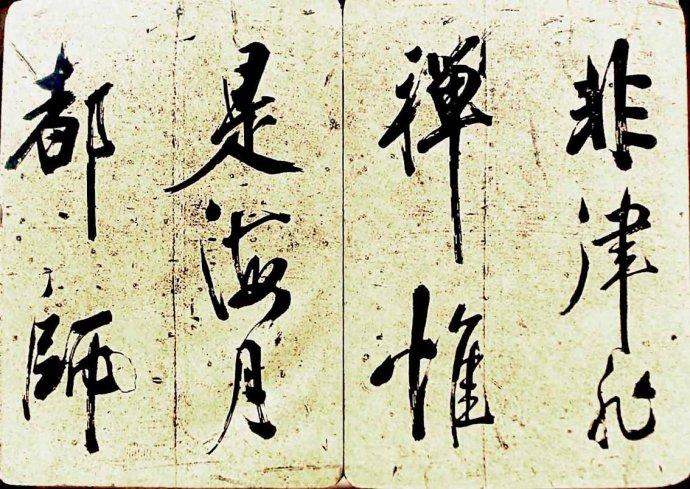 非津非
禪惟
是海月
都師